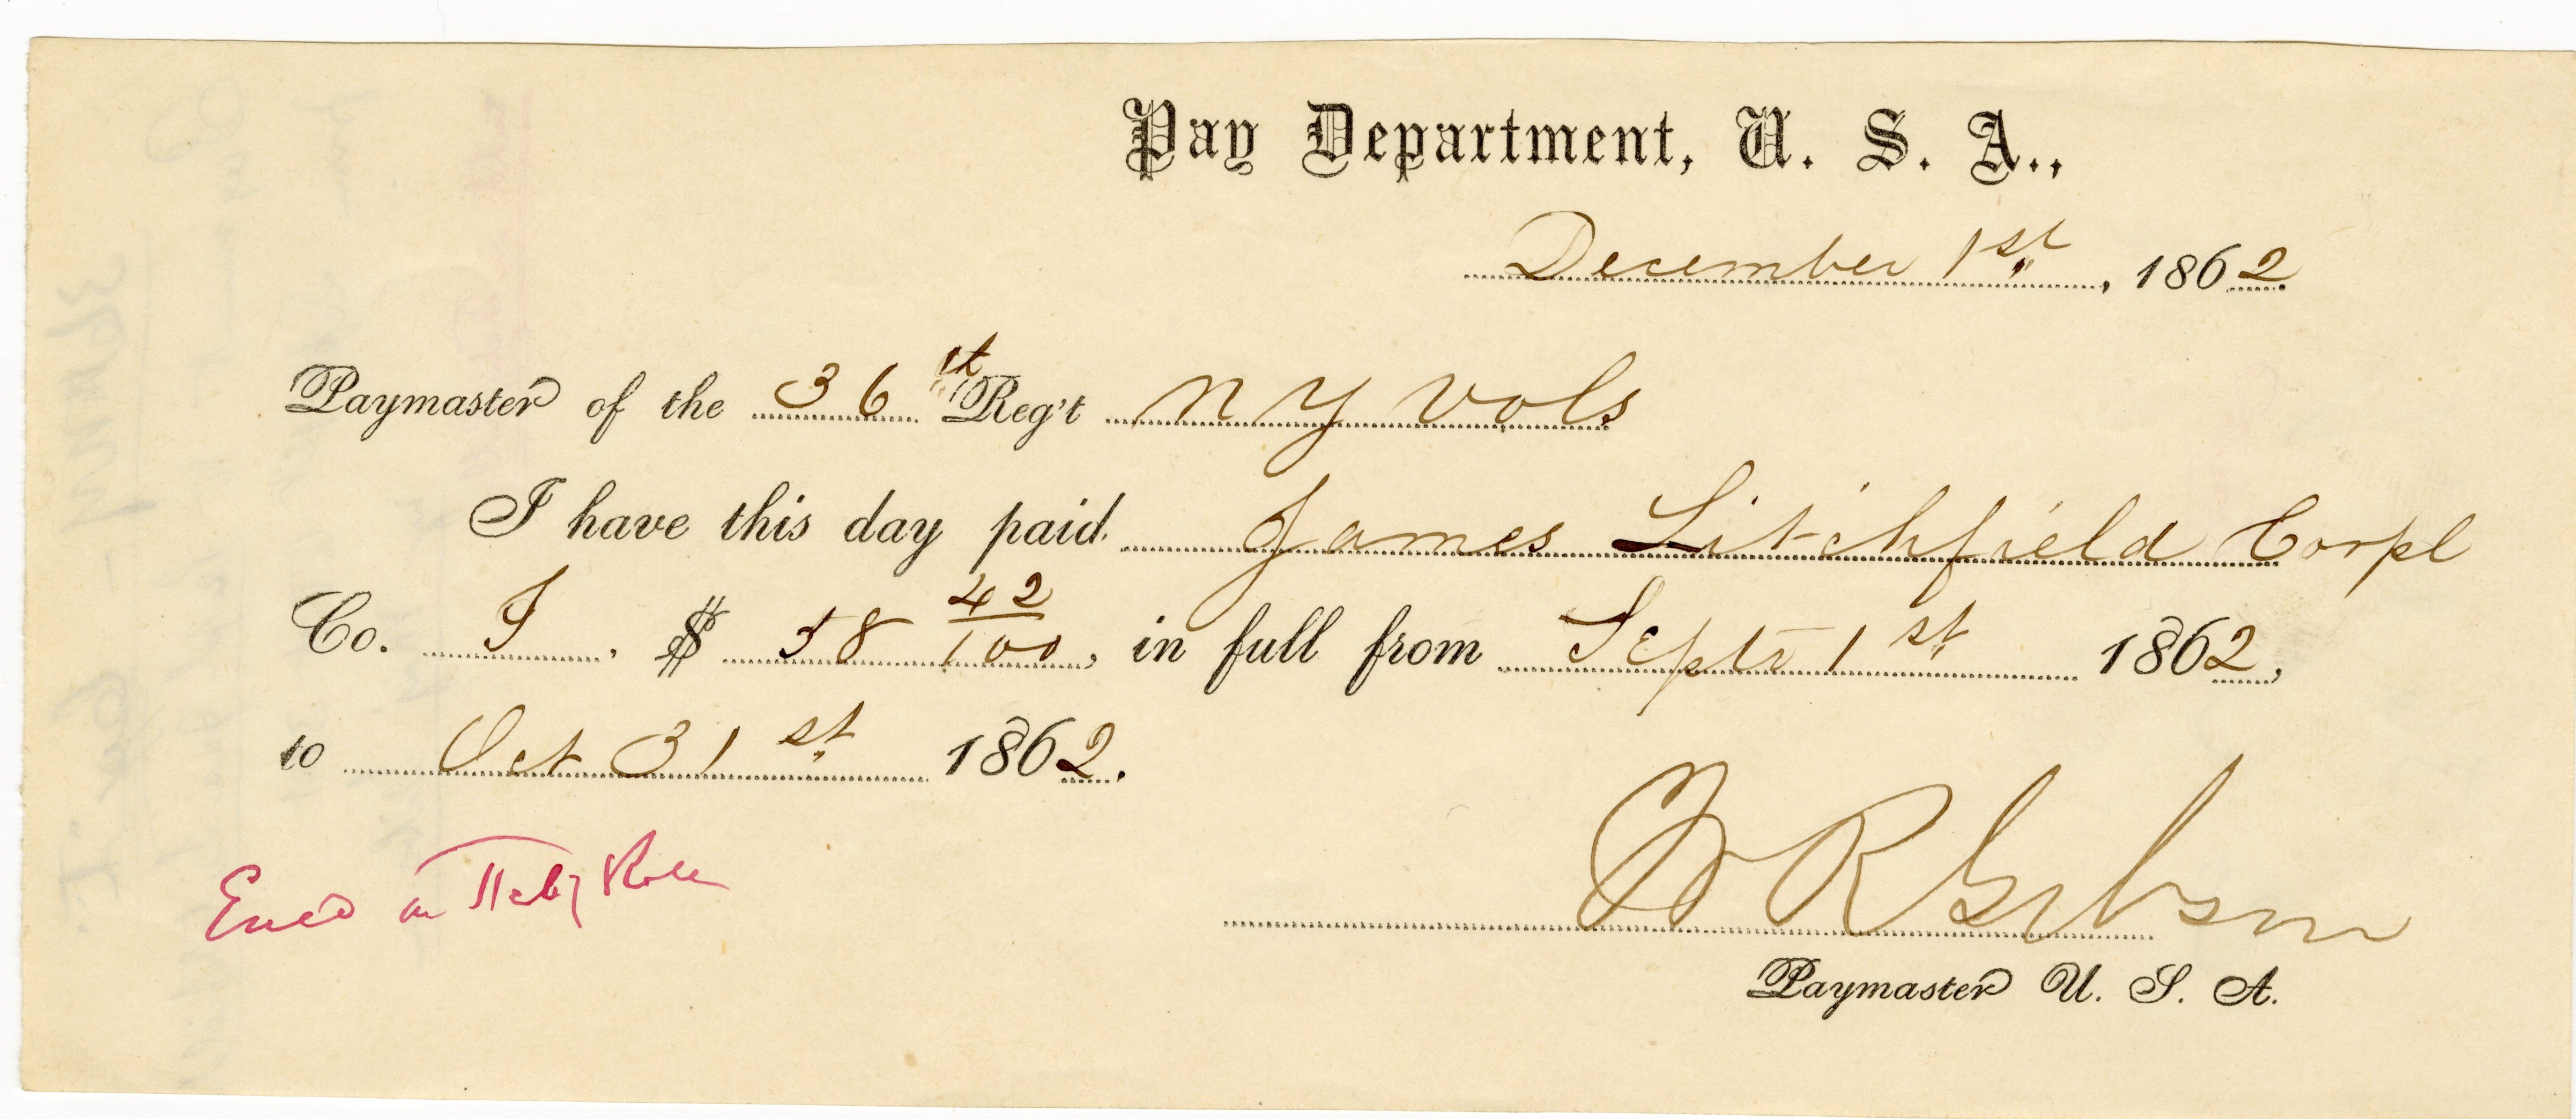 Pay Department, U. S. A.,
December 1st, 1862.
Paymaster of the 36th Reg't N Y Vols
I have this day paid James Litchfield Corpl
Co. I. $ 58 42/100, in full from Septr 1st 1862,
to Oct 31st 1862.
R Gibson
Paymaster U. S. A.
on Roll